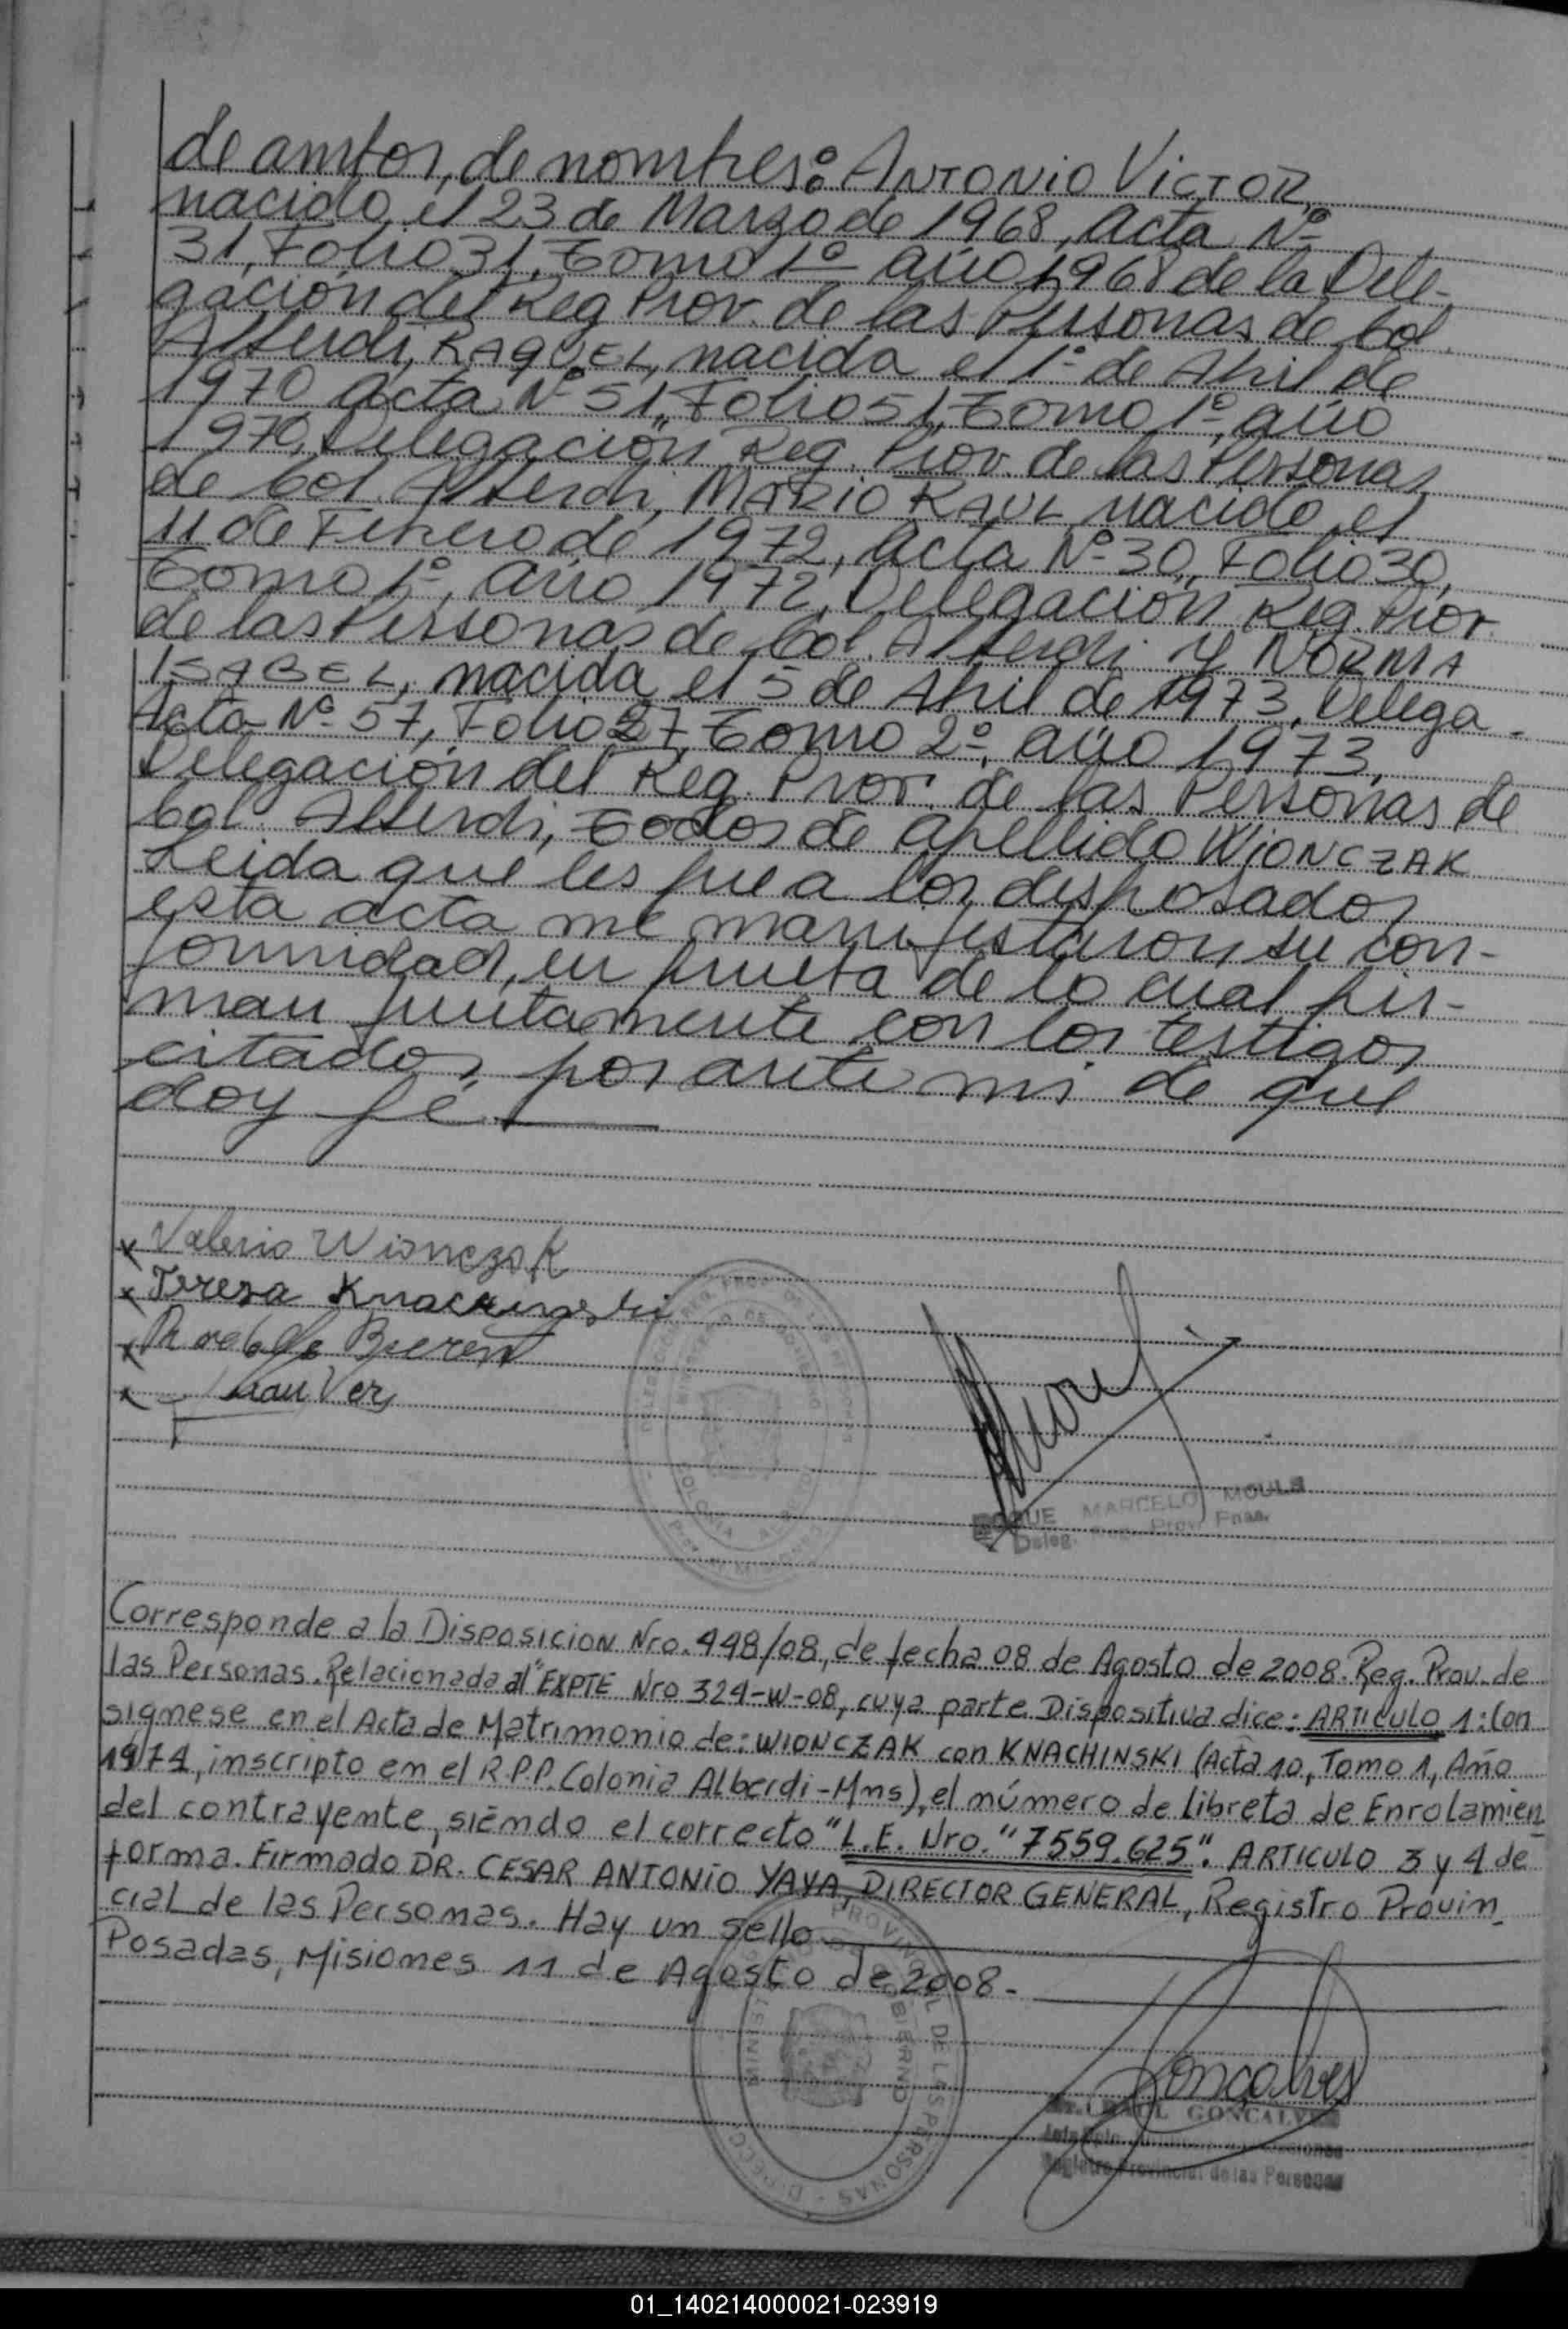 de ambos, de nombres: ANTONIO VICTOR,
nacido el 23 de Marzo de 1968, Acta Nº
31, Folio 31, Tomo 1º año 1968 de la Dele-
gación del Reg Prov. de las Personas de Col.
Alberdi, RAQUEL, nacida el 1º de Abril de
1970 Acta Nº 51, Folio 51, Tomo 1º, año
1970, Delegación Reg. Prov. de las Personas
de Col. Alberdi, MARIO RAUL nacido el
11 de Febrero de 1972, Acta Nº 30, Folio 30,
Tomo 1º, año 1972, Delegación Reg. Prov.
de las Personas de Col. Alberdi y NORMA
ISABEL, nacida el 5 de Abril de 1973, Delega-
Acta Nº 57, Folio 27, Tomo 2º, año 1973,
Delegación del Reg. Prov. de las Personas de
Col. Alberdi, todos de apellido WIONCZAK
Leida que les fue a los desposados
esta acta me manifestaron su con-
formidad, en prueba de lo cual fir-
man juntamente con los testigos
citados, por ante mi de que
doy fé
x Valerio Wionczak
x Teresa Knachinski
x
x Juan Ver
ROQUE MARCELO MOULE
Deleg. Prov. Pnas.
Corresponde a la DISPOSICION Nro. 448/08, de fecha 08 de Agosto de 2008. Reg. Prov. de
las Personas. Relacionada al "EXPTE Nro 324-W-08, cuya parte Dispositiva dice: ARTICULO 1: Con
signese en el Acta de Matrimonio de: WIONCZAK con KNACHINSKI (Acta 10, Tomo 1, Año
1974, inscripto en el R.P.P. Colonia Alberdi-Mns), el número de Libreta de Enrolamien
del contrayente, siendo el correcto "L.E. Nro. "7559.625". ARTICULO 3 y 4 de
forma. Firmado DR. CESAR ANTONIO YAYA, DIRECTOR GENERAL, Registro Provin
cial de las Personas. Hay un sello
Posadas, Misiones 11 de Agosto de 2008.-
Gonçalves
GONCALVES
Registro Provincial de las Personas
01_140214000021-023919